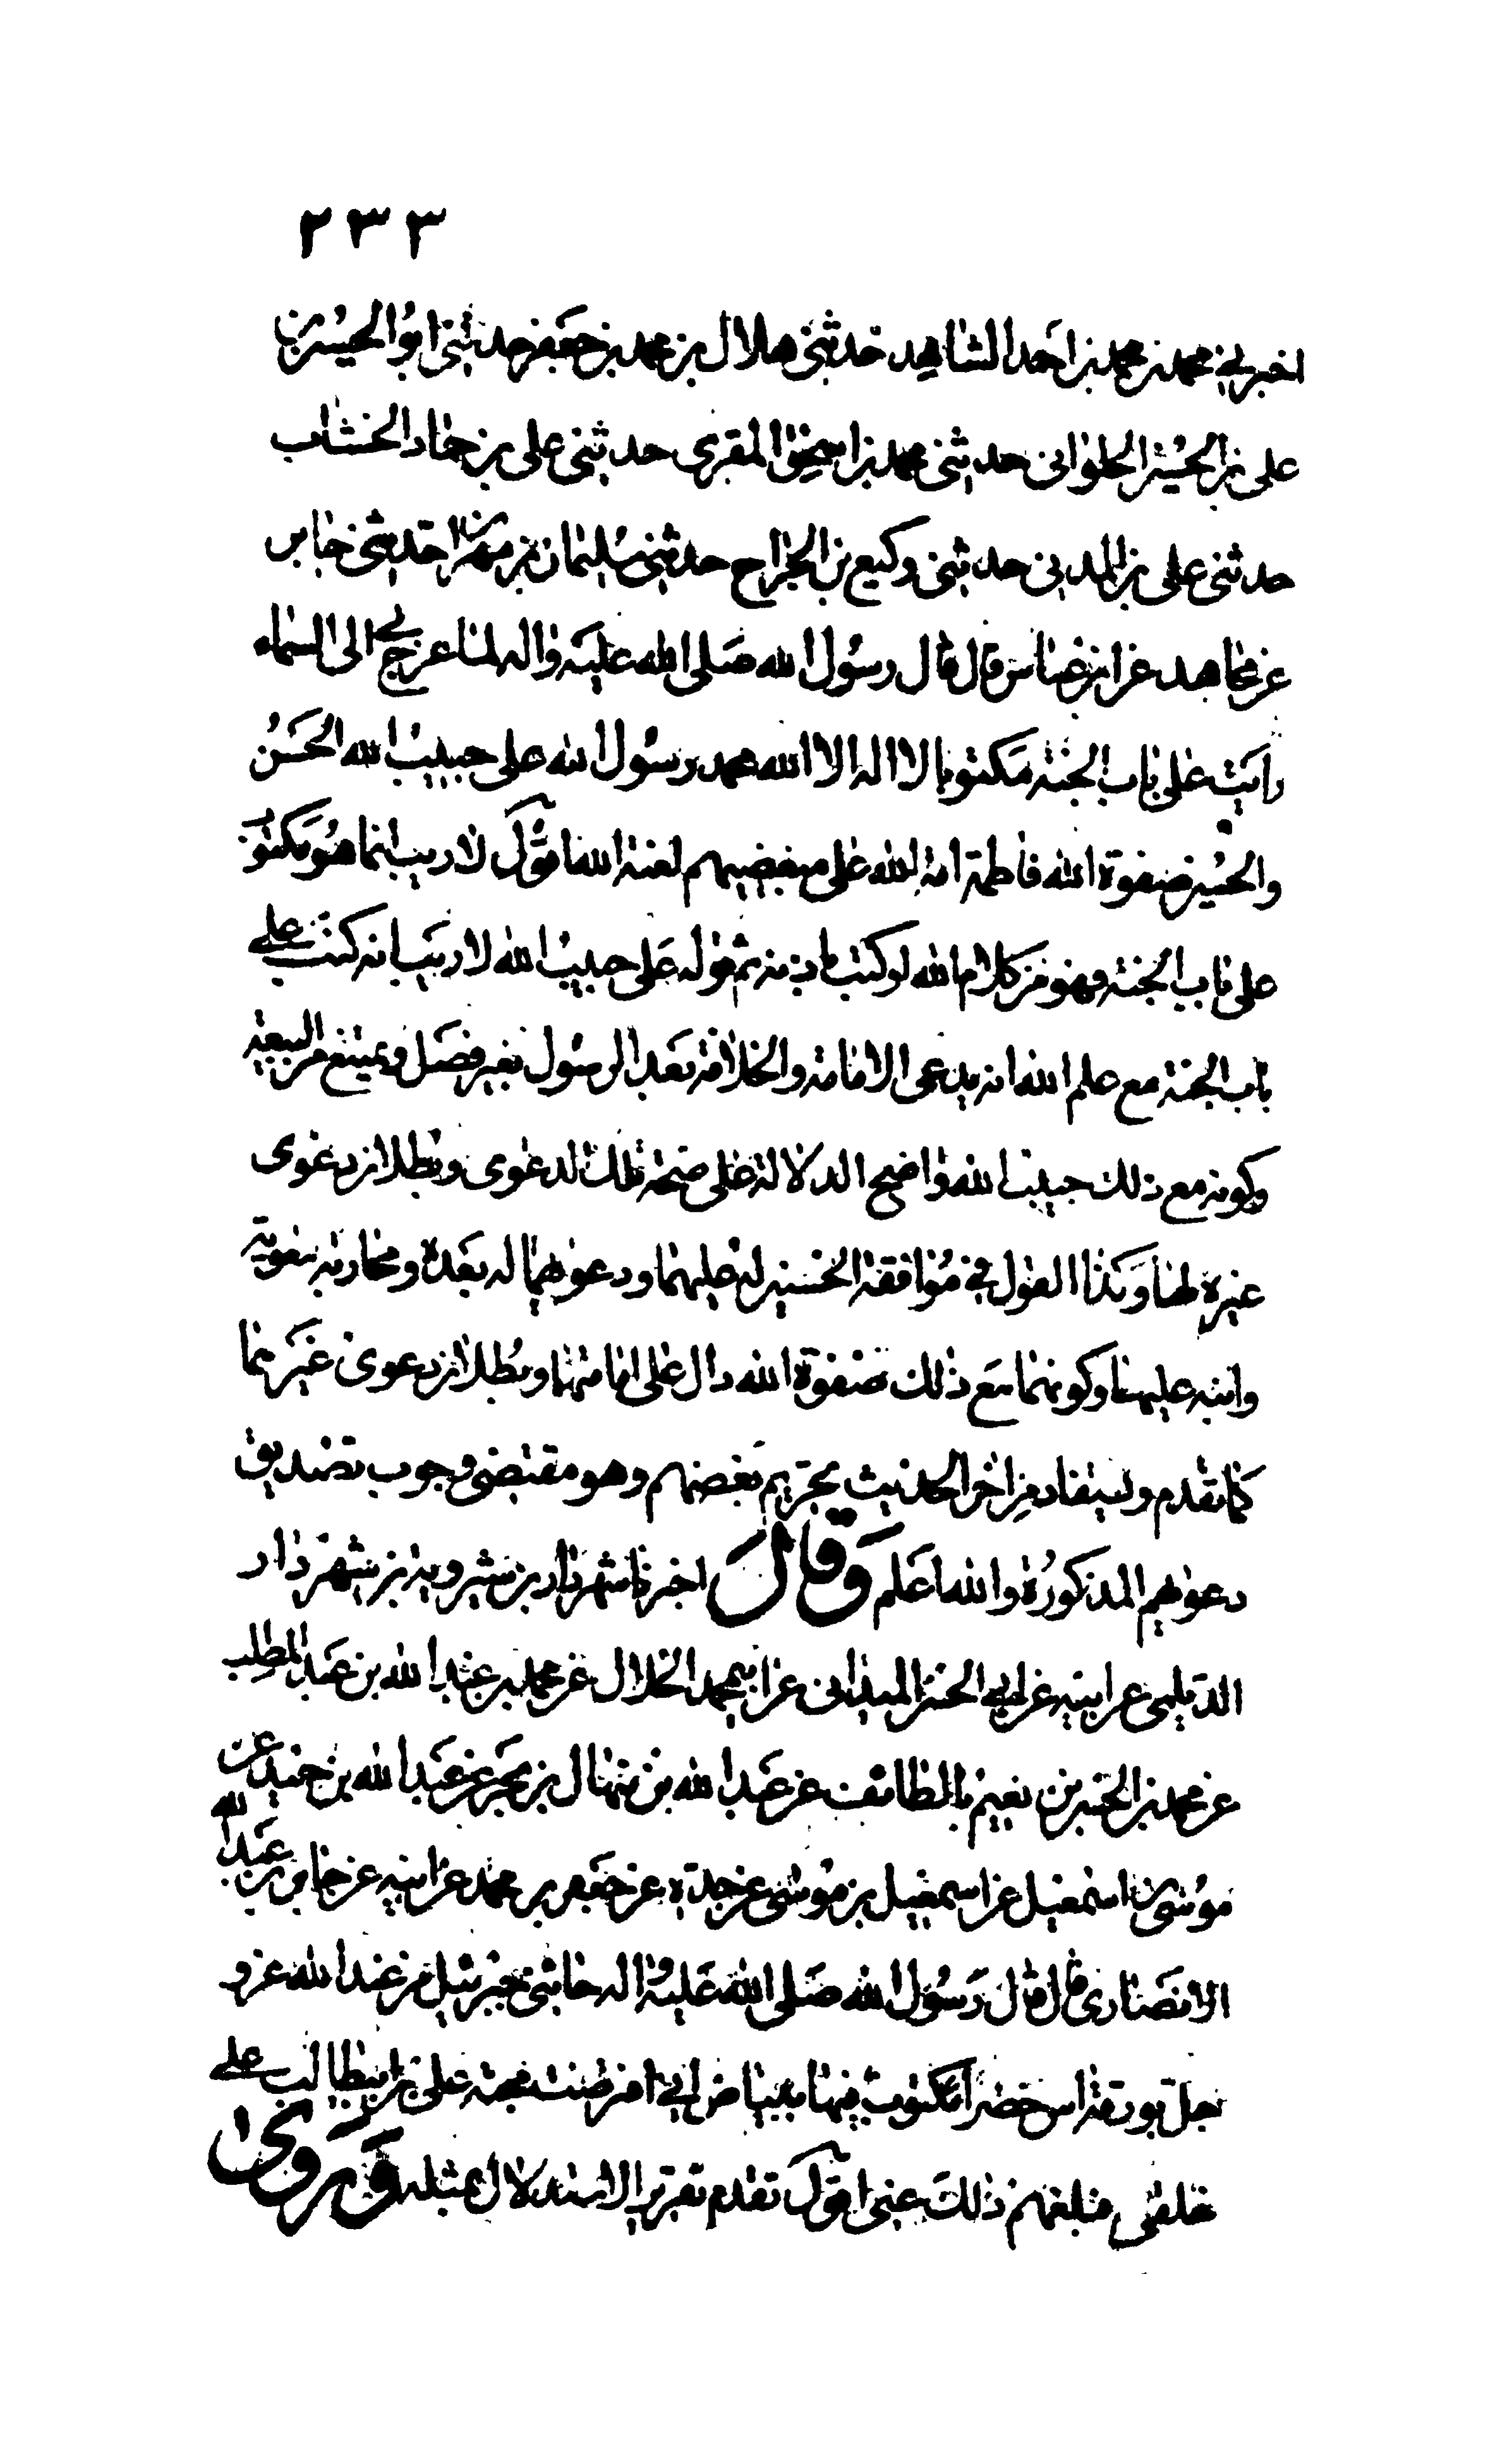 ٢٣٣
اخبرني محمد بن محمد بن احمد الشاهد حدثني هلال بن محمد بن جعفر حدثني ابو الحسن
علي بن الحسين الحلواني حدثني محمد بن اسحق المقري حدثني علي بن حماد الخشاب
حدثني علي بن المديني حدثني وكيع بن الجراح حدثني سليمان بن مهران حدثني جابر
عن مجاهد عن ابن عباس قال قال رسول الله صلى الله عليه واله لما عرج بي الى السماء
رايت على باب الجنة مكتوبا لا اله الا الله محمد رسول الله علي حبيب الله الحسن
والحسين صفوة الله فاطمة امة الله على مبغضيهم لعنة الله اقول لا ريب انما هو مكتوب
على باب الجنة فهو من كلام الله او كتب باذنه ثم قوله علي حبيب الله لا ريب انه كتب على
باب الجنة مع علم الله انه يدعي الامامة والخلافة بعد الرسول بغير فصل ويمتنع من البيعة
وكونه مع ذلك حبيب الله واضح الدلالة على صحة تلك الدعوى وبطلان دعوى
غيره لها وكذا القول في موافقة الحسنين له عليهما ودعواهما له بعده ومحاربة معوية
وابنه عليهما وكونهما مع ذلك صفوة الله دال على امامتهما وبطلان دعوى غيرهما
كما تقدم ويستفاد من اخر الحديث تحريم بغضهم وهو مقتضى وجوب تصديق
دعواهم المذكورة والله اعلم وقال اخبرنا شهردار بن شيرويه بن شهردار
الديلمي عن ابيه عن ابي الحسن الميداني عن ابي محمد الخلال عن محمد بن عبد الله بن عبد المطلب
عن محمد بن الحسين بن نعيم بالطائف عن عبد الله بن منهال بن بحر عن عبد الله بن حميد عن
موسى بن اسمعيل عن اسمعيل بن موسى عن جده عن جعفر بن محمد عن ابيه عن جابر بن عبد الله
الانصاري قال قال رسول الله صلى الله عليه واله جائني جبرئيل من عند الله عز و
جل بورقة اس خضرا مكتوب فيها ببياض اني افترضت محبة علي بن ابيطالب على
خلقي فبلغهم ذلك عني اقول تقدم تقرير الاستدلال بمثله وروى